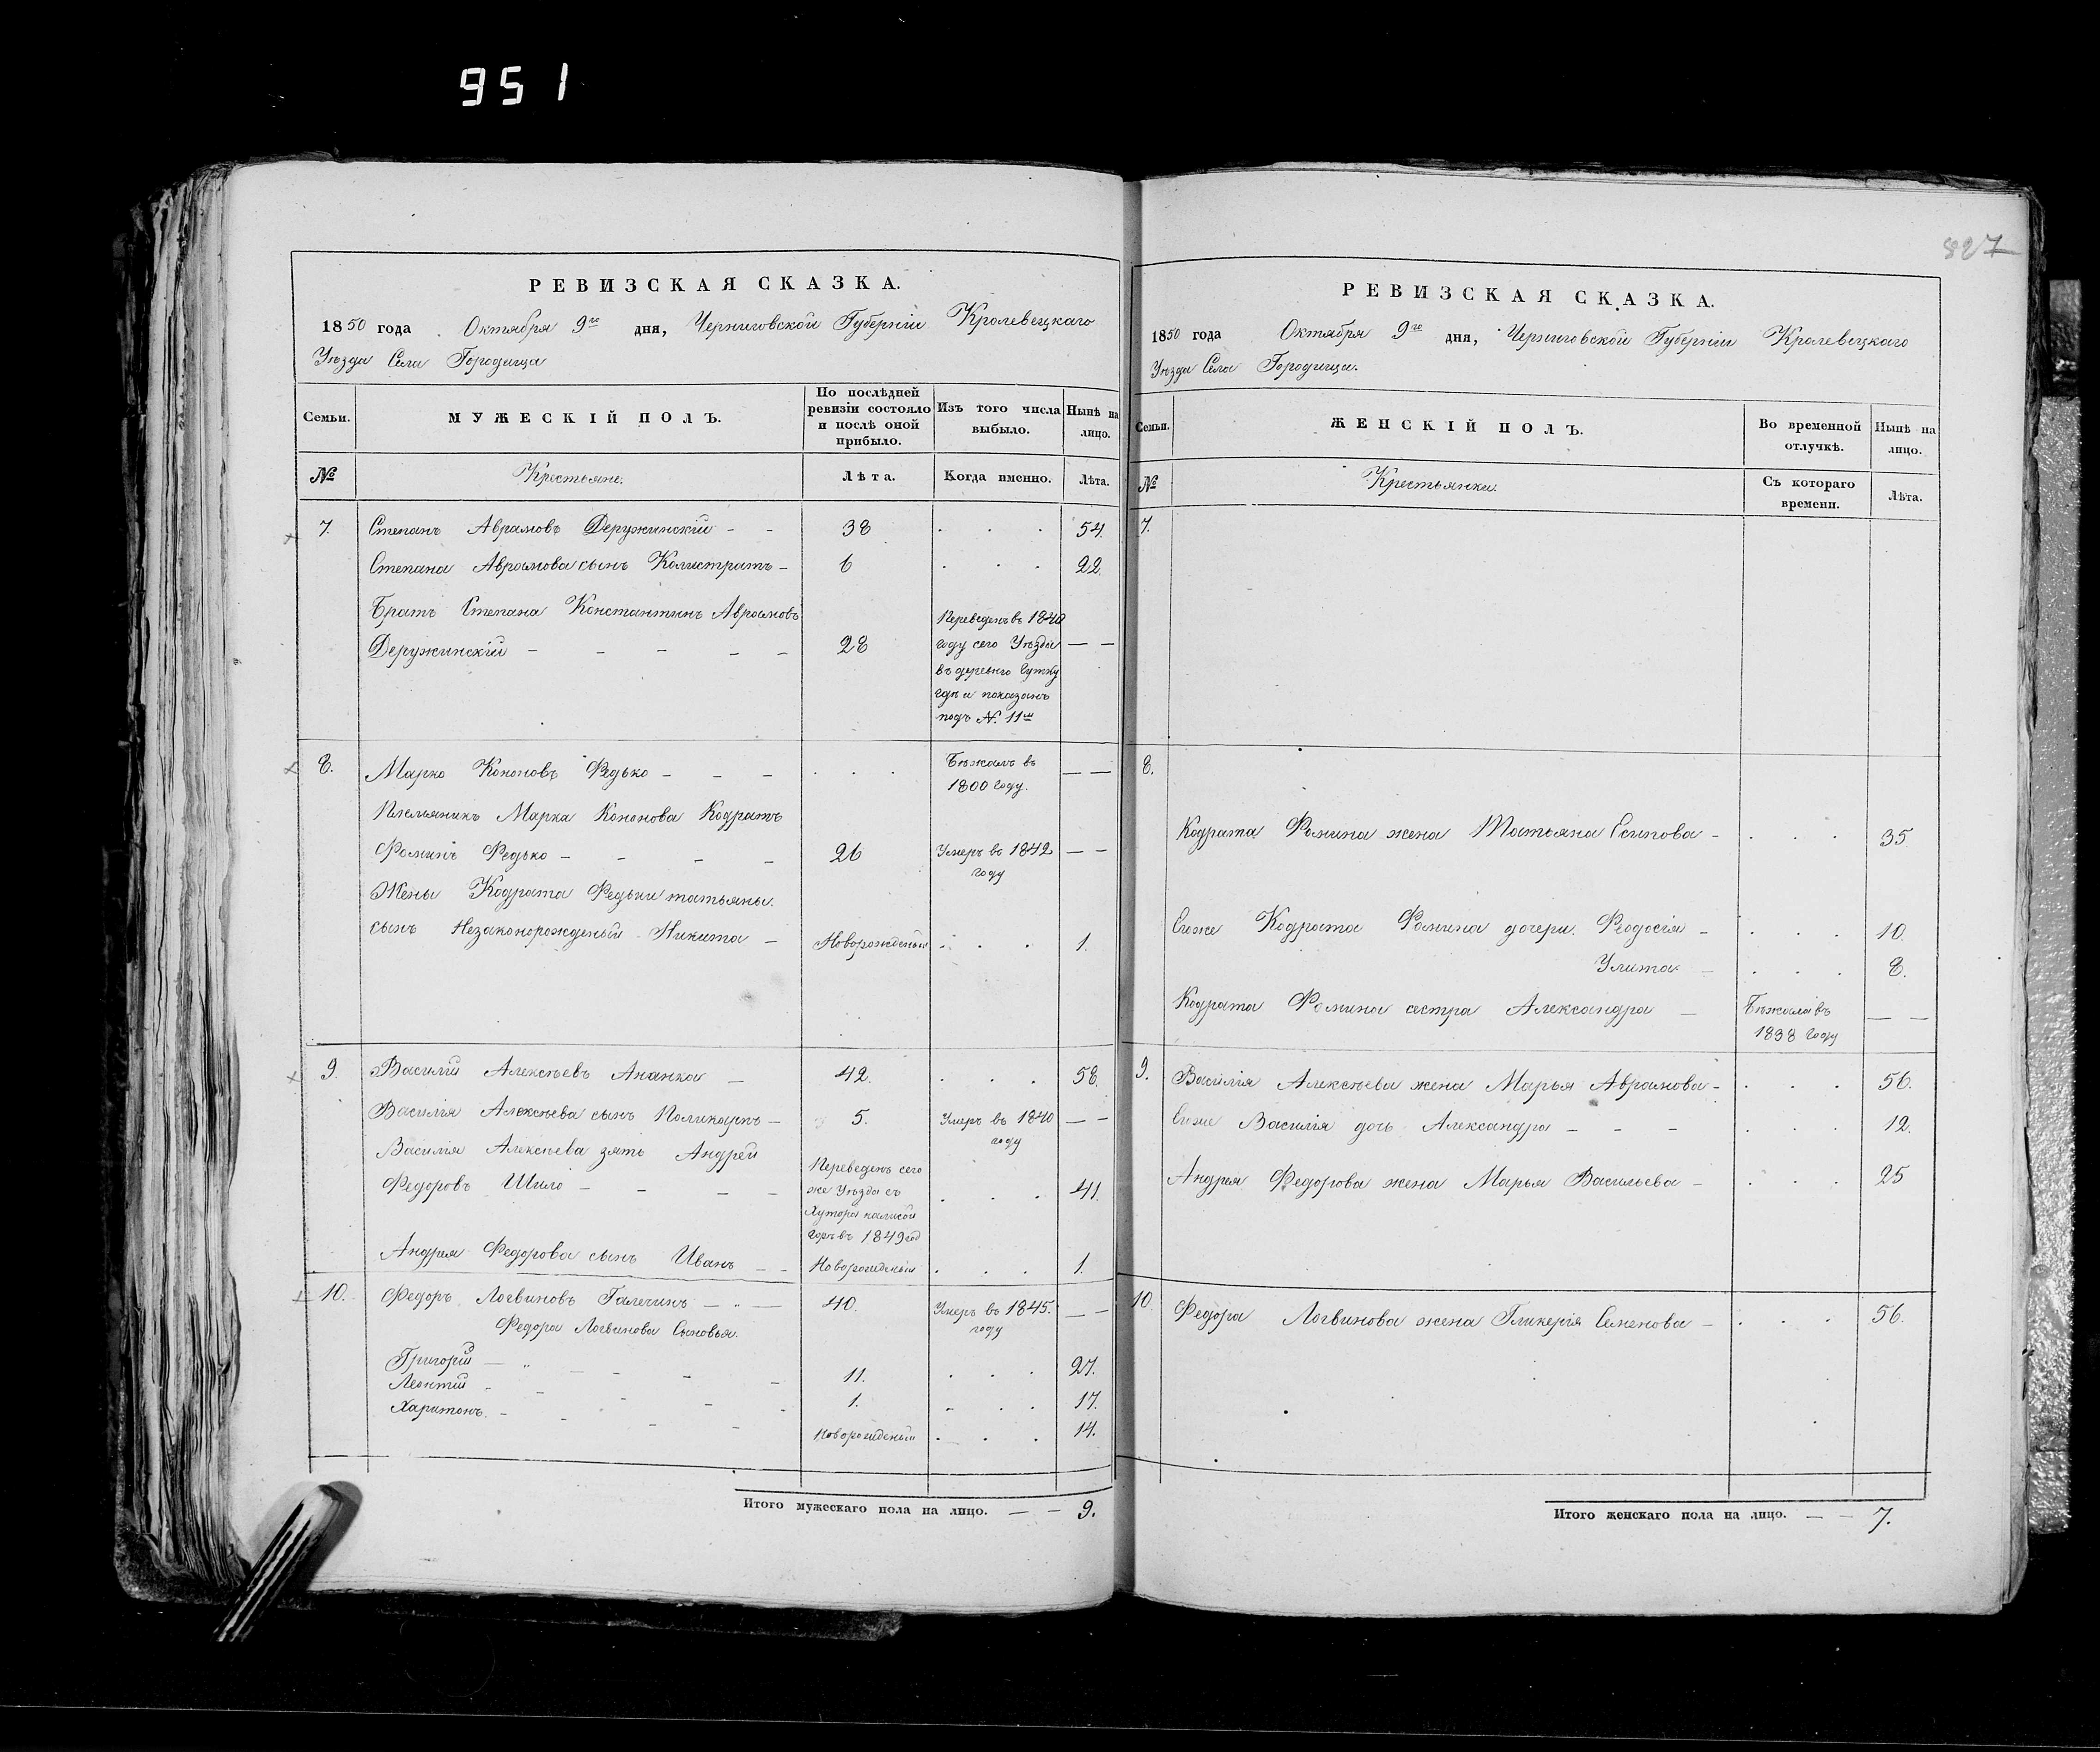 951
827
РЕВИЗСКАЯ СКАЗКА.
1850 года Октября 9го дня, Черниговской Губерніи Кролевецкаго
Уѣзда Села Городища
Семьи. МУЖЕСКІЙ ПОЛЪ. По послѣдней ревизіи состояло и послѣ оной прибыло. Изъ того числа выбыло. Нынѣ на лицо.
№ Крестьяне. Лѣта. Когда именно. Лѣта.
7. Степанъ Аврамовъ Деружинскій - - 38 . . . 54.
Степана Аврамова сынъ Калистратъ - 6 . . . 22.
Братъ Степана Константинъ Аврамовъ
Деружинскій - - - - - 28 Переведенъ въ 1840 — —
году сего Уѣзда
въ деревню
гдѣ и показанъ
подъ №. 11м
8. Марко Кононовъ Федько - - - . . . Бѣжалъ въ — —
1800 году.
Племьяникъ Марка Кононова Кодратъ
Фоминъ Федько - - - - 26 Умеръ въ 1842 — —
году
Жены Кодрата Федьки татьяны.
сынъ Незаконорожденый Никита - Новорожденый . . . 1.
9. Василій Алексѣевъ Ананка - 42. . . . 58.
Василія Алексѣева сынъ Поликарпъ - 5. Умеръ въ 1840 — —
году
Василія Алексѣева зять Андрей
Федоровъ Шило - - - - Переведенъ сего . . . 41.
же Уѣзда съ
Хутора
горъ въ 1849 год
Андрея Федорова сынъ Иванъ - - Новорожденый . . . 1.
10. Федоръ Логвиновъ Галечинъ — „ — 40. Умеръ въ 1845. — —
году
Федора Логвинова Сыновья.
Григорій — „ — - - - 11. . . . 27.
Леонтій - - - - - 1. . . . 17.
Харитонъ. - - - - Новорожденый . . . 14.
Итого мужескаго пола на лицо. — — 9.
РЕВИЗСКАЯ СКАЗКА.
1850 года Октября 9го дня, Черниговской Губерніи Кролевецкаго
Уѣзда Села Городища.
Семьи. ЖЕНСКІЙ ПОЛЪ. Во временной отлучкѣ. Нынѣ на лицо.
№ Крестьянки. Съ котораго времени. Лѣта.
7.
8.
Кодрата Фомина жена Татьяна Есипова - . . . 35.
Егоже Кодрата Фомина дочери. Феодосія - . . . 10.
Улита - . . . 8.
Кодрата Фомина сестра Александра - Бѣжала въ — —
1838 году
9. Василія Алексѣева жена Марья Аврамова - . . . 56.
Егоже Василія дочь Александра - - - . . . 12.
Андрея Федорова жена Марья Васильева - . . . 25
10. Федора Логвинова жена Гликерія Семенова - . . . 56.
Итого женскаго пола на лицо. — — 7.